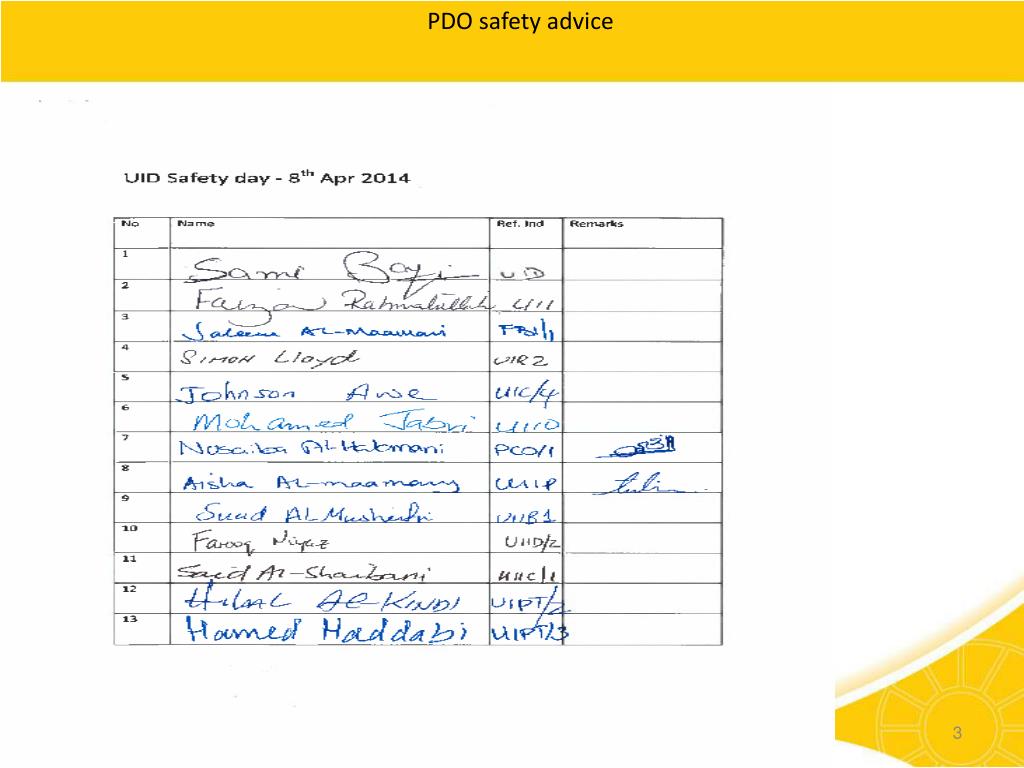 PDO safety advice
UID Safety day - 8th Apr 2014
No Name Ref. Ind Remarks
1 Sami UID
2 Faizan Rahmatullah UI1
3 Saleem AL-Maamari
4 Simon Lloyd UIR2
5 Johnson Awe UIC/4
6 Mohamed Jabri
7 Nosaiba Al-Hakmani PCO/1
8 Aisha AL-maamary
9 Suad AL UIIB1
10 Farooq Niyaz UIID/2
11 Said Al-Shaibani UIIC/1
12 Hilal Al-KINDI UIPT/2
13 Hamed Haddabi UIPT/3
3